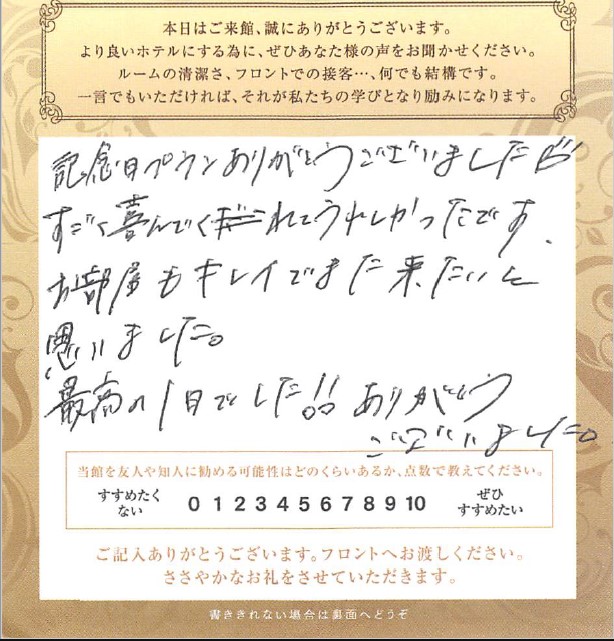 本日はご来館、誠にありがとうございます。
より良いホテルにする為に、ぜひあなた様の声をお聞かせください。
ルームの清潔さ、フロントでの接客…、何でも結構です。
一言でもいただければ、それが私たちの学びとなり励みになります。
記念日プランありがとうございました
すごく喜んでくれてうれしかったです。
お部屋もキレイでまた来たいと
思いました。
最高の1日でした!! ありがとう
ございました。
当館を友人や知人に勧める可能性はどのくらいあるか、点数で教えてください。
すすめたくない 0 1 2 3 4 5 6 7 8 9 10 ぜひすすめたい
ご記入ありがとうございます。フロントへお渡しください。
ささやかなお礼をさせていただきます。
書ききれない場合は裏面へどうぞ